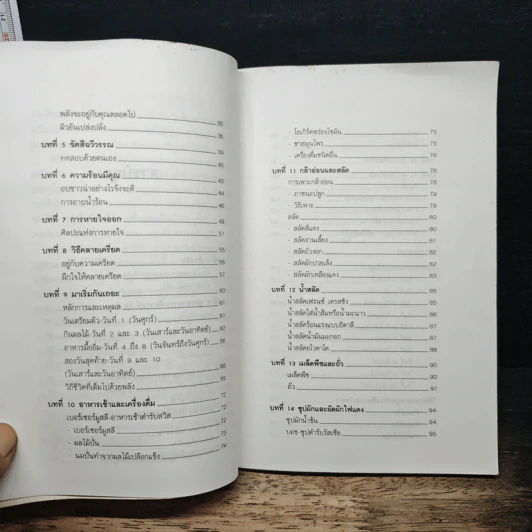 พลังจะอยู่กับคุณตลอดไป 35
ผิวอันเปล่งปลั่ง 36
บทที่ 5 ขัดสีฉวีวรรณ 39
ทดสอบด้วยตนเอง 40
บทที่ 6 ความร้อนมีคุณ 43
อบซาวน่าอย่างไรจึงจะดี 44
การอาบน้ำร้อน 46
บทที่ 7 การหายใจออก 49
ศิลปะแห่งการหายใจ 51
บทที่ 8 วิธีคลายเครียด 55
อยู่กับความเครียด 56
ฝึกใจให้คลายเครียด 57
บทที่ 9 มาเริ่มกันเถอะ
หลักการและเหตุผล
วันเตรียมตัว-วันที่ 1 (วันศุกร์) 61
กินผลไม้-วันที่ 2 และ 3 (วันเสาร์และวันอาทิตย์) 62
อาหารมื้อยิ้ม-วันที่ 4 ถึง 8 (วันจันทร์ถึงวันศุกร์) 65
สองวันสุดท้าย-วันที่ 9 และ 10
(วันเสาร์และวันอาทิตย์) 68
วิถีชีวิตที่เต็มไปด้วยพลัง 69
บทที่ 10 อาหารเช้าและเครื่องดื่ม 72
เบอร์เชอร์มูสลี-อาหารเช้าตำรับสวิส 72
- เบอร์เชอร์มูสลี 72
- ผลไม้ปั่น 73
- นมปั่นทำจากผลไม้เปลือกแข็ง 74
- โยเกิร์ตพร่องไขมัน 75
- ชาสมุนไพร 76
- เครื่องดื่มชนิดอื่น 76
บทที่ 11 กล้าอ่อนและสลัด 78
การเพาะกล้าอ่อน 78
- ภาชนะปลูก 78
- วิธีเพาะ 79
สลัด 80
- สลัดสีแดง 80
- สลัดงานเลี้ยง 81
- สลัดถั่วงอก 81
- สลัดผักปวยเล้ง 82
- สลัดผักเหลืองแดง 83
บทที่ 12 น้ำสลัด 85
น้ำสลัดเฟรนช์ เดรสซิง 86
น้ำสลัดใส่น้ำส้มหรือน้ำมะนาว 87
น้ำสลัดร้อนแรงแบบอิตาลี 88
น้ำสลัดน้ำมันมะกอก 88
น้ำสลัดอโวคาโด 88
บทที่ 13 เมล็ดพืชและถั่ว 90
เมล็ดพืช 90
ถั่ว 91
บทที่ 14 ซุปผักและผัดผักไฟแดง 94
ซุปผักน้ำข้น 94
บอช-ซุปตำรับรัสเซีย 95